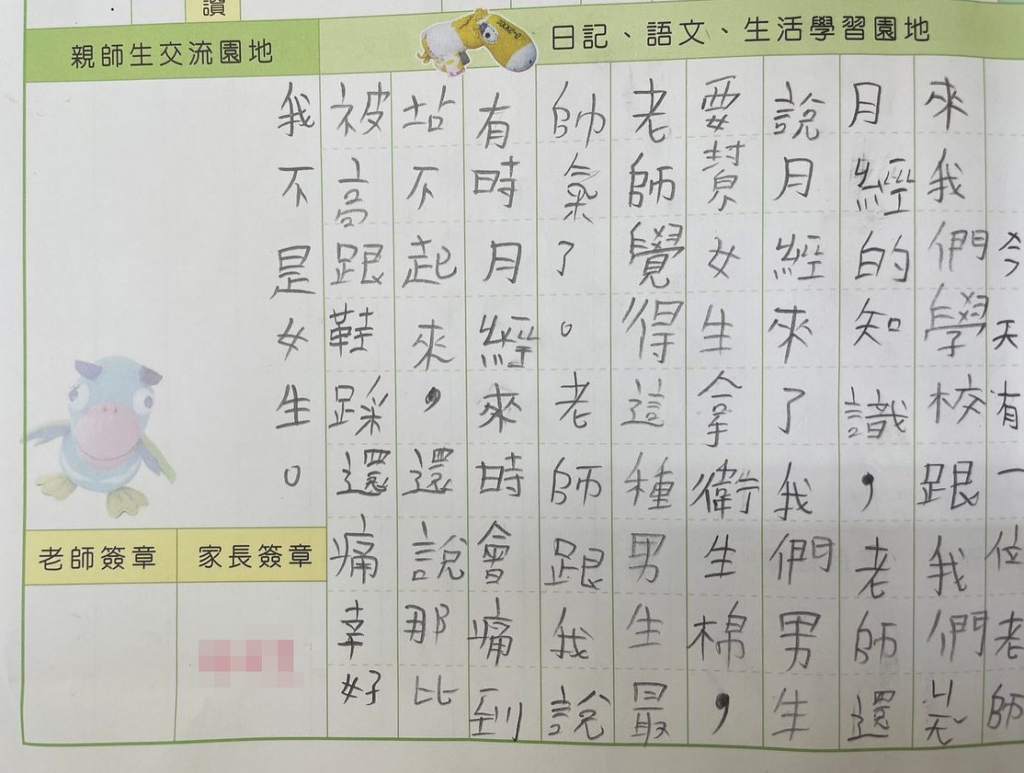 讚
親師生交流園地
日記、語文、生活學習園地
今天有一位老師
來我們學校跟我們ㄐㄧㄤˇ
月經的知識，老師還
說月經來了我們男生
要幫女生拿衛生棉，
老師覺得這種男生最
帥氣了。老師跟我說
有時月經來時會痛到
站不起來，還說那比
被高跟鞋踩還痛幸好
我不是女生。
老師簽章
家長簽章